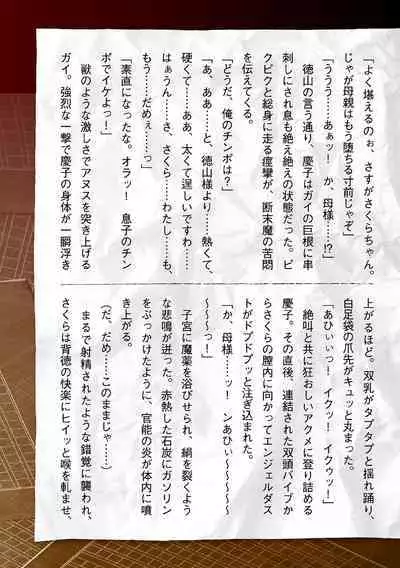 「よく堪えるのぉ、さすがさくらちゃん。
じゃが母親はもう堕ちる寸前じゃぞ」
「ううう……あぁッ！　か、母様……!?」
徳山の言う通り、慶子はガイの巨根に串
刺しにされ息も絶え絶えの状態だった。ビ
クビクと総身に走る痙攣が、断末魔の苦悶
を伝えてくる。
「どうだ、俺のチンポは？」
「あ、ああ……と、徳山様より……熱くて、
硬くて……ああ、太くて逞しいですわ……
はぁうん……さ、さくら……わたし……も、
もう……だめぇ……っ」
「素直になったな。オラッ！　息子のチン
ポでイケよっ！」
獣のような激しさでアヌスを突き上げる
ガイ。強烈な一撃で慶子の身体が一瞬浮き
上がるほど。双乳がタプタプと揺れ踊り、
白足袋の爪先がキュッと丸まった。
「あひぃぃっ！　イクッ！　イクゥッ！」
絶叫と共に狂おしいアクメに登り詰める
慶子。その直後、連結された双頭バイブか
らさくらの膣内に向かってエンジェルダス
トがドプドプッと注ぎ込まれた。
「か、母様……ッ！　ンあひぃ〜〜〜〜〜
〜〜〜っ！」
子宮に魔薬を浴びせられ、絹を裂くよう
な悲鳴が迸った。赤熱した石炭にガソリン
をぶっかけたように、官能の炎が体内に噴
き上がる。
（だ、だめ……このままじゃ……）
まるで射精されたような錯覚に襲われ、
さくらは背徳の快楽にヒイッと喉を軋ませ、